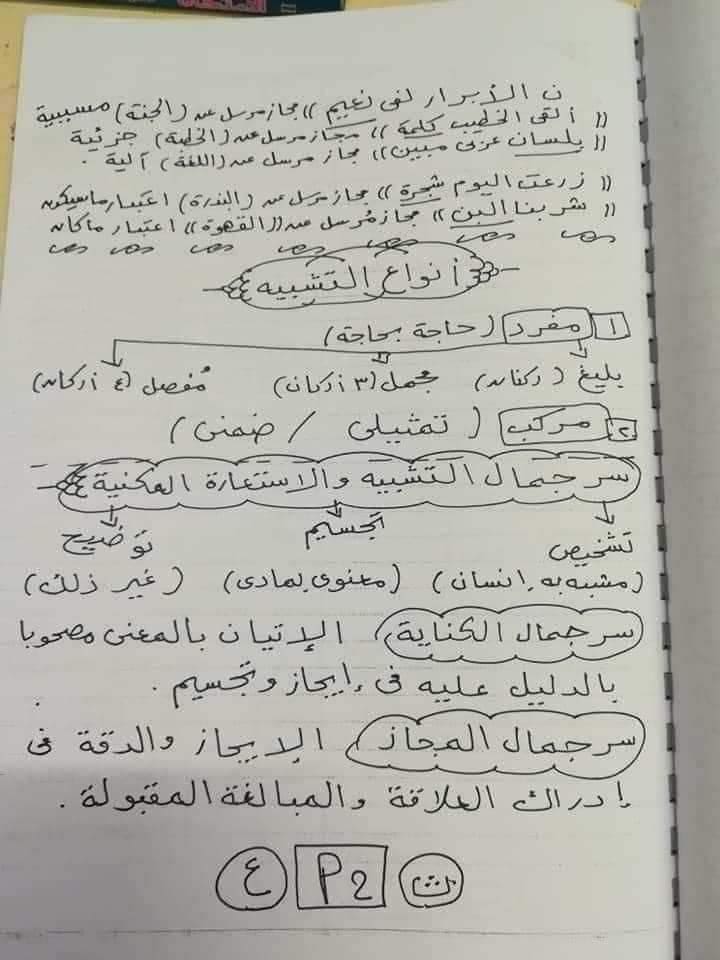 ن الأبرار لفى نعيم )) مجاز مرسل عن (الجنة) مسببية
(( ألقى الخطيب كلمة )) مجاز مرسل عن (الخطبة) جزئية
(( بلسان عربى مبين )) مجاز مرسل عن (اللغة) آلية.
(( زرعت اليوم شجرة )) مجاز مرسل عن (البذرة) اعتبار ماسيكون
(( شربنا البن )) مجاز مُرسل عن ((القهوة)) اعتبار ماكان
أنواع التشبيه
١ مفرد (حاجة بحاجة)
بليغ (ركنان) مجمل (٣ أركان) مُفصل (٤ أركان)
٢. مركب ( تمثيلى / ضمنى )
سر جمال التشبيه والاستعارة المكنية
تشخيص تجسيم توضيح
(مشبه به إنسان) (معنوى بمادى) (غير ذلك)
سر جمال الكناية الإتيان بالمعنى مصحوبا
بالدليل عليه فى إيجاز وتجسيم.
سر جمال المجاز الإيجاز والدقة فى
إدراك العلاقة والمبالغة المقبولة.
ث P2 ع